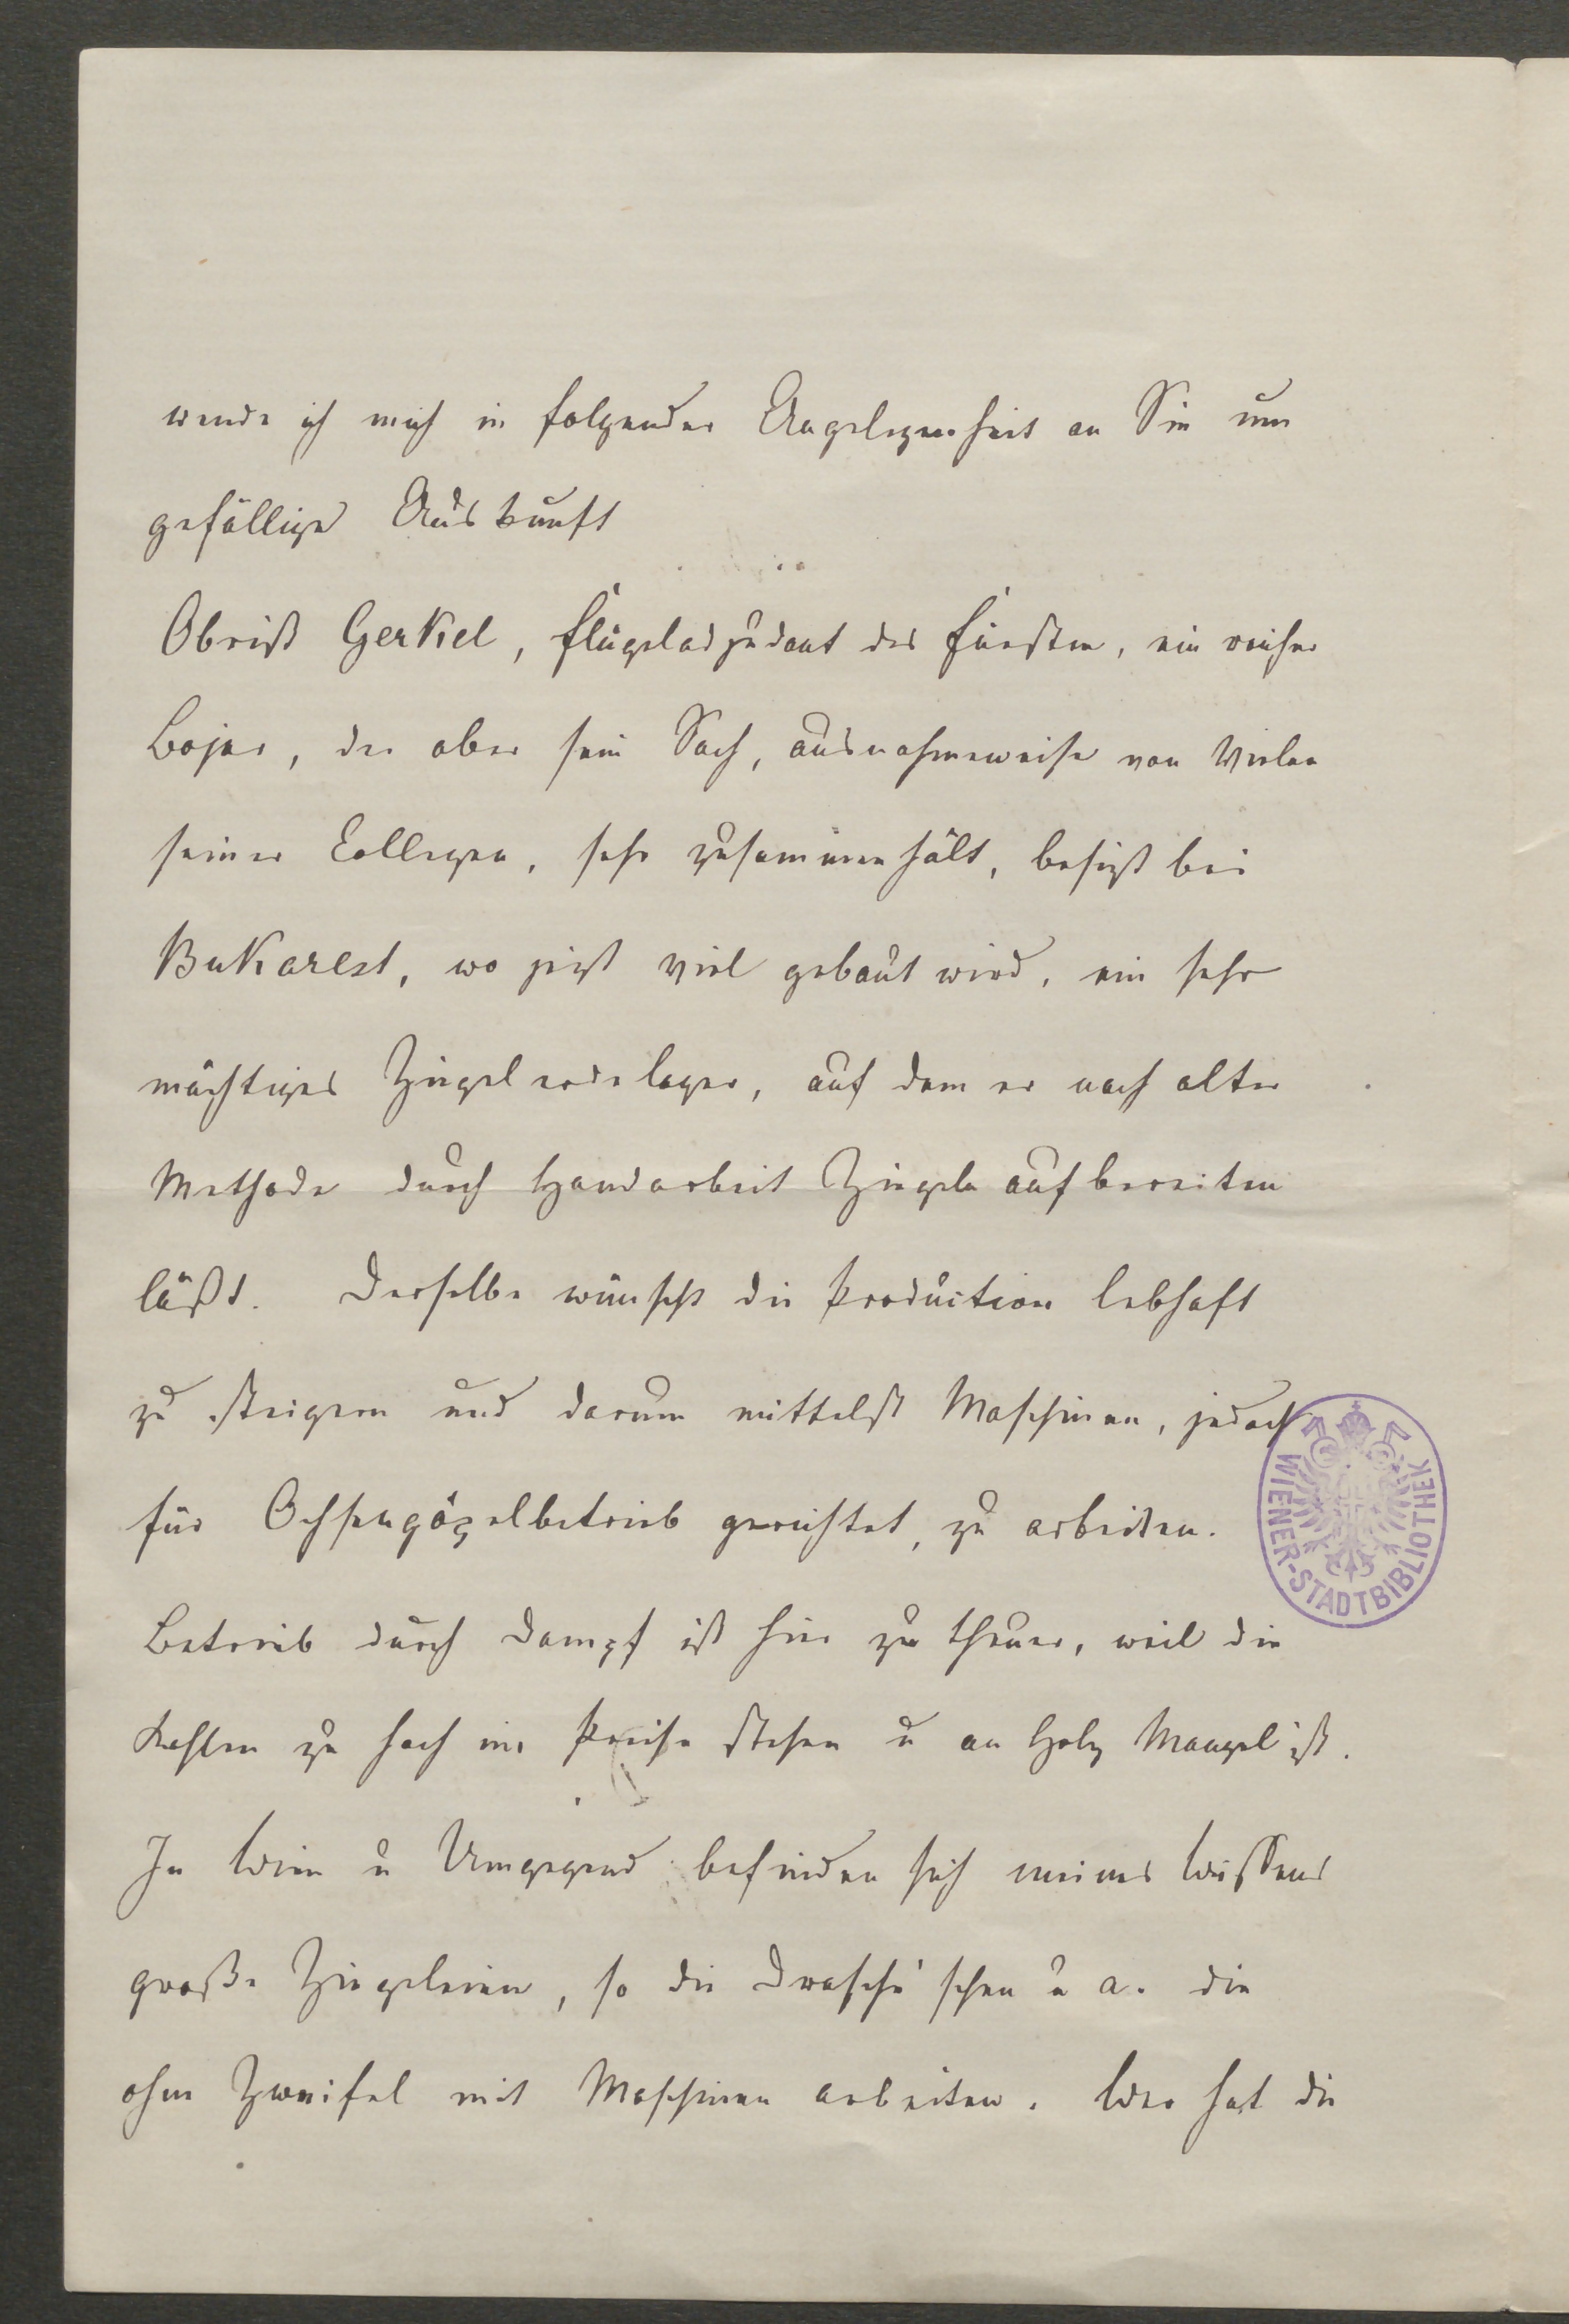 wende ich mich in folgender Angelegenheit an Sie um
gefällige Auskunft
Obrist Gerkel, Flügeladjudant des Fürsten, ein reicher
Bojar, der aber sein Sach, ausnahmsweise von Vielen
seiner Collegen, sehr zusammenhält, besizt bei
Bukarest, wo jezt viel gebaut wird, ein sehr
mächtiges Ziegelerdelager, auf dem er nach alter
Methode durch Handarbeit Ziegeln aufbereiten
läßt. Derselbe wünscht die Production lebhaft
zu steigern und darum mittelst Maschinen, jedoch
für Ochsengöpelbetrieb gerichtet, zu arbeiten.
Betrieb durch Dampf ist hier zu theuer, weil die
Kohlen zu hoch im Preise stehen u an Holz Mangel ist.
In Wien u Umgegend befinden sich meines Wissens
große Ziegeleien, so die Drasche'schen u a. die
ohne Zweifel mit Maschinen arbeiten. Wer hat die
WIENER-STADTBIBLIOTHEK